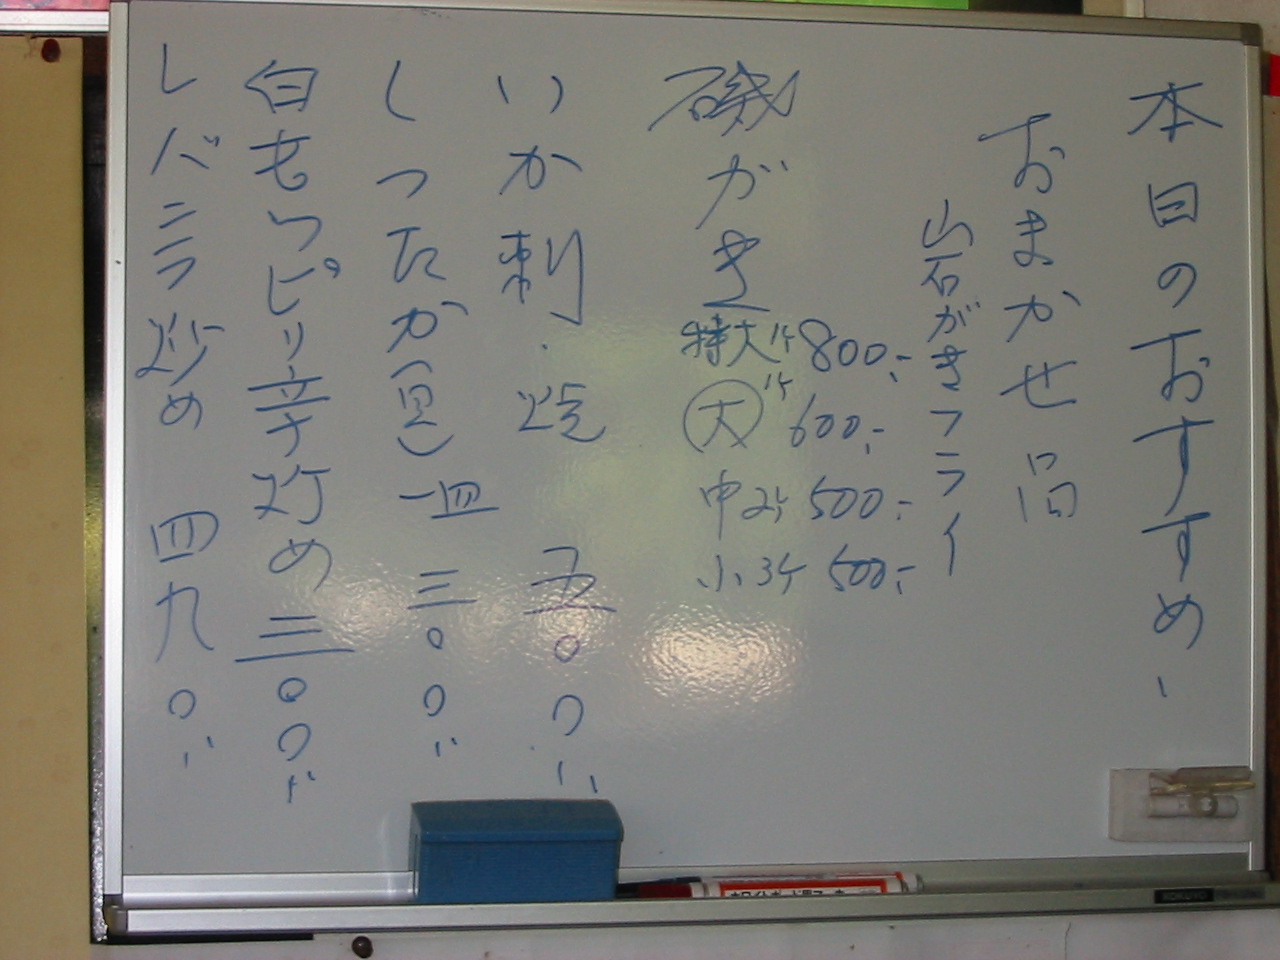 本日のおすすめ、
おまかせ品
岩がきフライ
磯がき
特大1ケ 800,-
大 1ケ 600,-
中2ケ 500,-
小3ケ 500,-
いか刺・焼 五〇〇
しったか(貝)一皿 三〇〇
白もつピリ辛炒め 三〇〇
レバニラ炒め 四九〇
KOKUYO